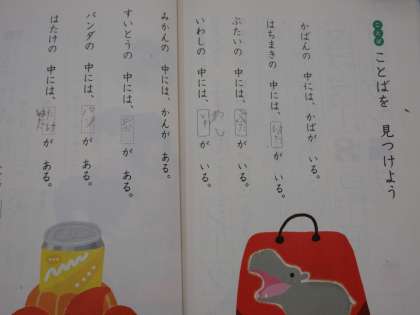 ことば
ことばを 見つけよう
かばんの 中には、かばが いる。
はちまきの 中には、はちが いる。
ぶたいの 中には、ぶたが いる。
いわしの 中には、わしが いる。
みかんの 中には、かんが ある。
すいとうの 中には、が ある。
パンダの 中には、パンが ある。
はたけの 中には、が ある。